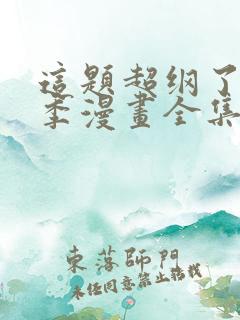 這題超纲了
季漫畫全集
東落師門
未经同意禁止转载